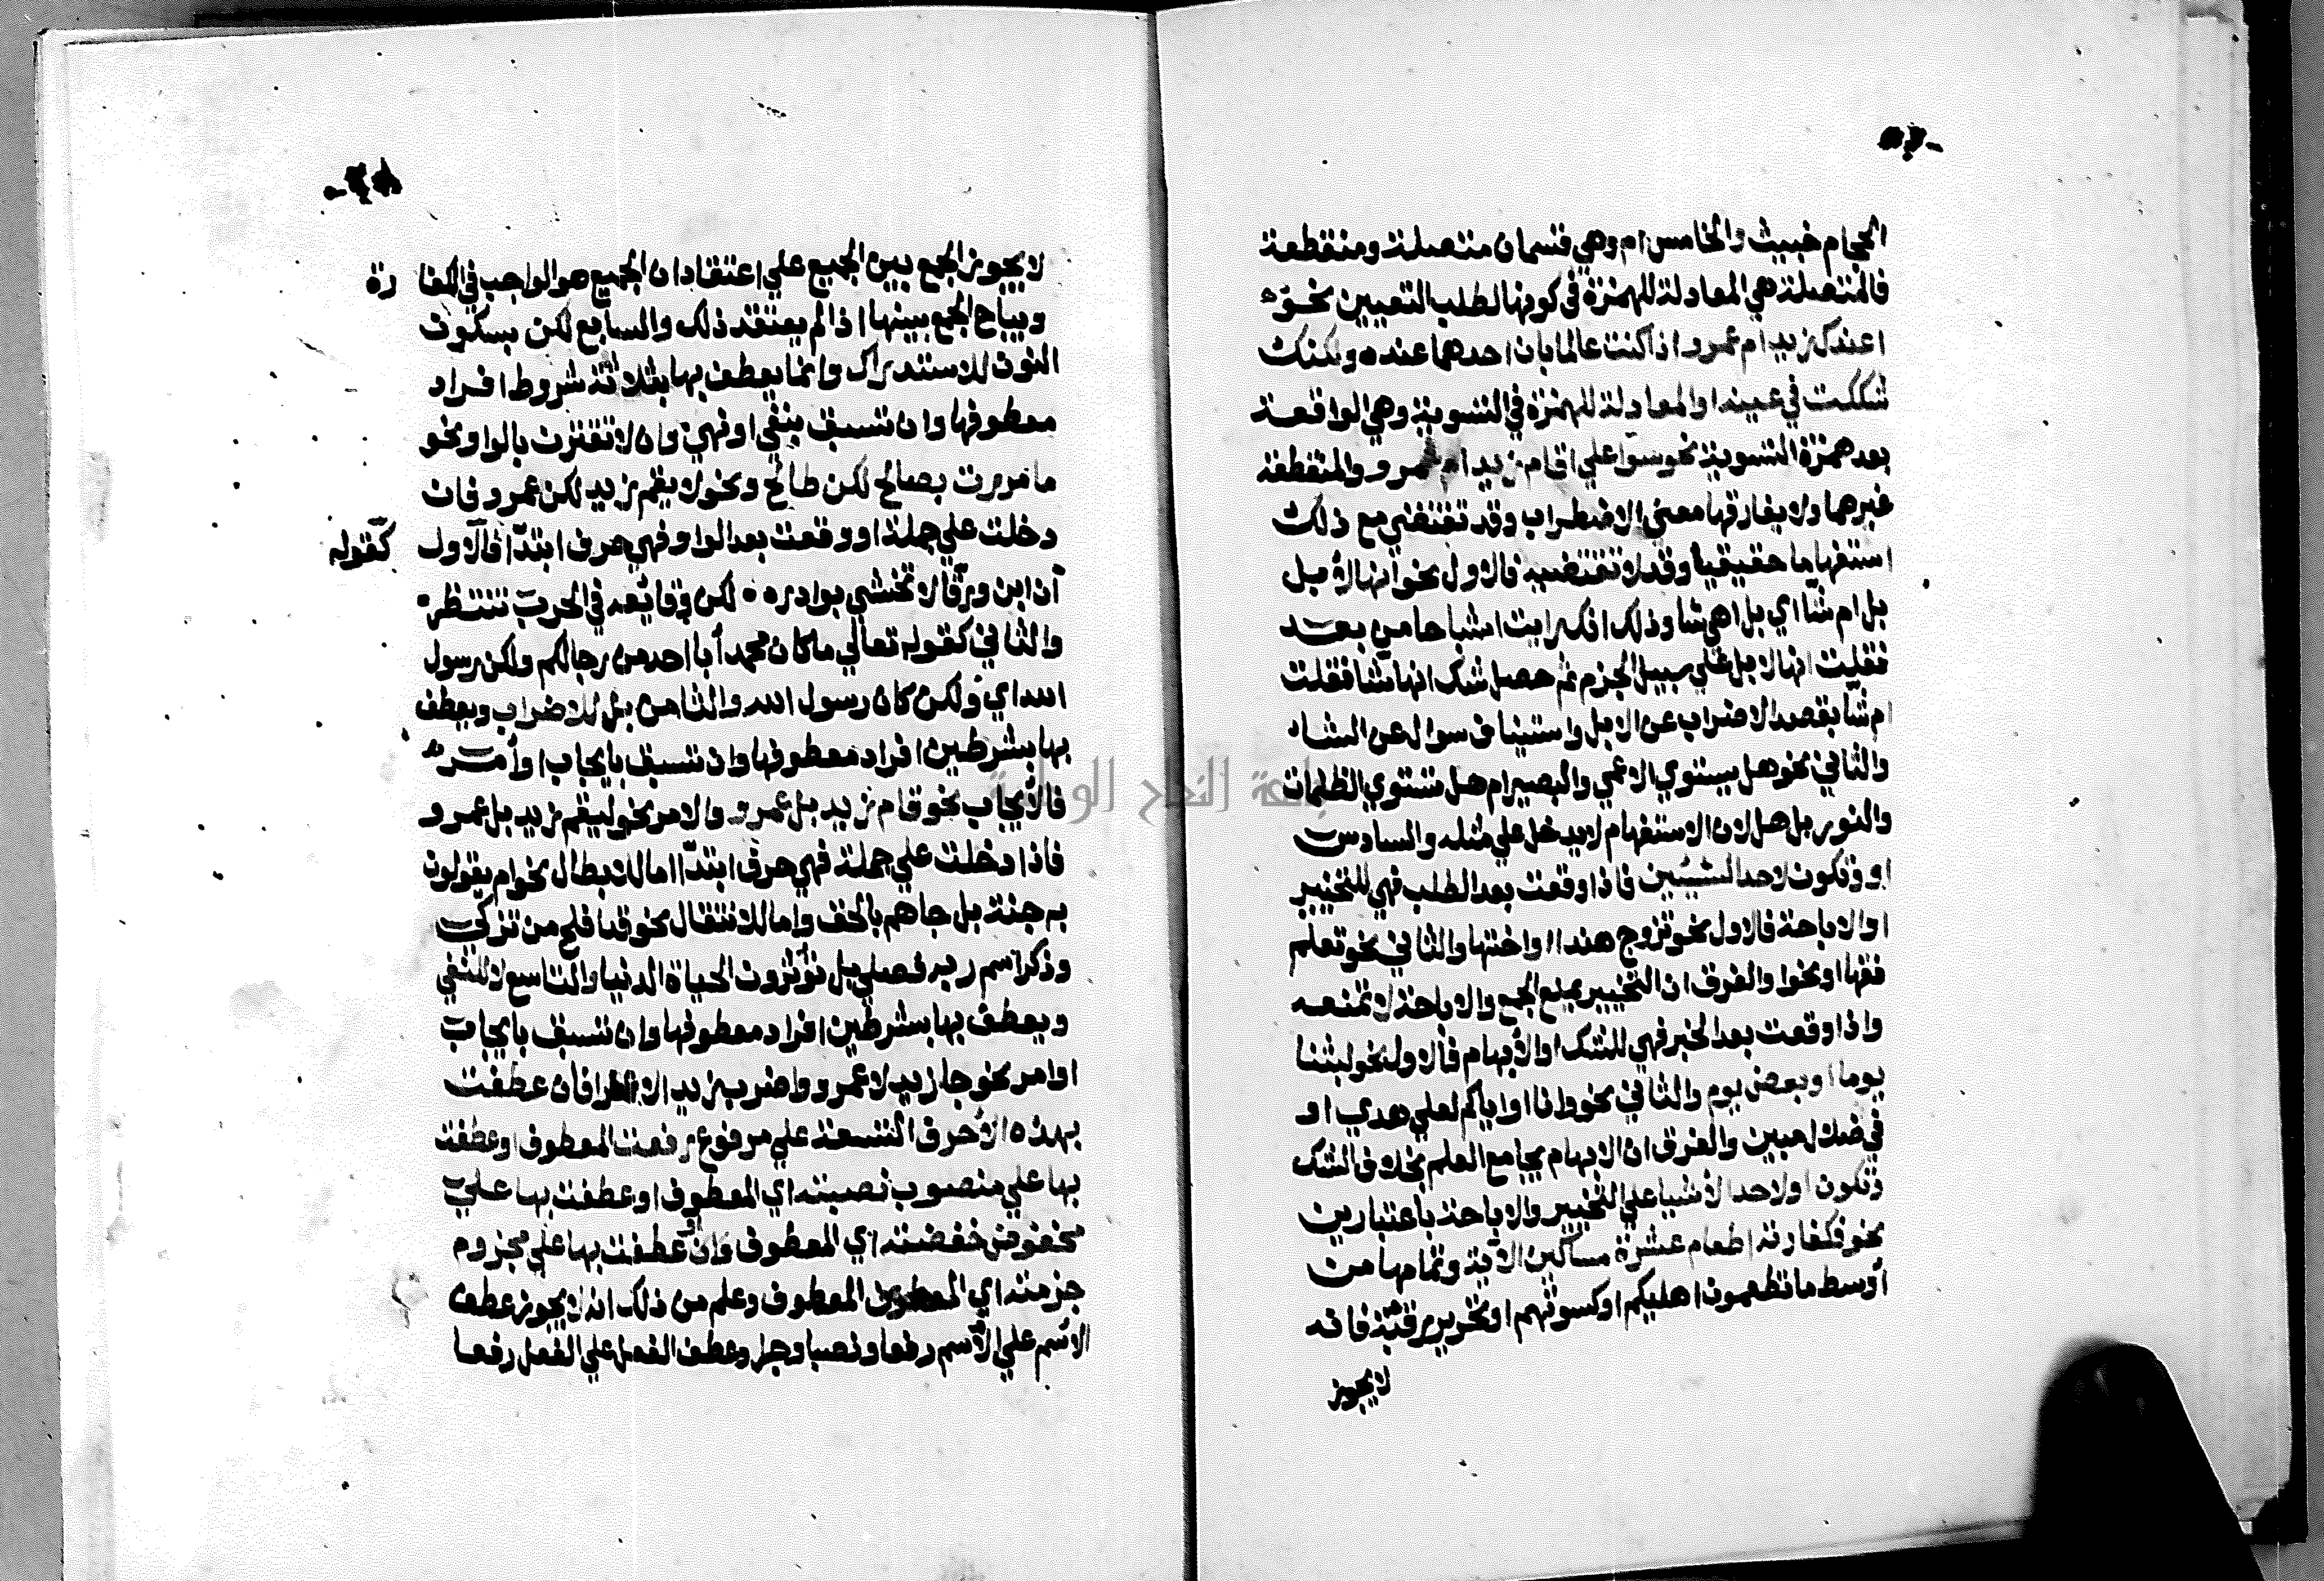 الحجام خبيث والخامس ام وهي قسمان متصلة ومنقطعة
فالمتصلة هي المعادلة للهمزة في كونها لطلب التعيين نحو
اعندك زيد ام عمرو اذا كنت عالما بان احدهما عنده ولكنك
شككت في عينه او المعادلة للهمزة في التسوية وهي الواقعة
بعد همزة التسوية نحو سوا علي اقام زيد ام عمرو والمنقطعة
غيرهما ولا يفارقها معنى الاضطراب وقد تقتضي مع ذلك
استفهاما حقيقيا وقد لا تقتضيه فالاول نحو انها لابل
بل ام شا اي بل اهي شا وذلك انك رايت اشباحا من بعد
فقلت انها لابل علي سبيل الجزم ثم حصل شك انها شا فقلت
ام شا بقصد الاضراب عن الابل واستيناف سوال عن الشاء
والثاني نحو هل يستوي الاعمي والبصير ام هل تستوي الظلمات
والنور بل هل لان الاستفهام لا يدخل علي مثله والسادس
او وتكون لاحد الشيئين فاذا وقعت بعد الطلب فهي للتخيير
او الاباحة فالاول نحو تزوج هندا او اختها والثاني نحو تعلم
فقها او نحوا والفرق ان التخيير يمنع الجمع والاباحة لا تمنعه
واذا وقعت بعد الخبر فهي للشك او الابهام فالاول نحو لبثنا
يوما او بعض يوم والثاني نحو وانا او اياكم لعلي هدي او
في ضلال مبين والفرق ان الابهام يجامع العلم بخلاف الشك
وتكون او لاحد الاشيا علي التخيير والاباحة باعتبارين
نحو فكفارته اطعام عشرة مساكين الاية وتمامها من
اوسط ما تطعمون اهليكم او كسوتهم او تحرير رقبة فانه
لا يجوز
لا يجوز الجمع بين الجميع علي اعتقاد ان الجميع هو الواجب في الكفا رة
ويباح الجمع بينها اذا لم يعتقد ذلك والسابع لكن بسكون
النون للاستدراك وانما يعطف بها بثلاثة شروط افراد
معطوفها وان تسبق بنفي او نهي وان لا تقترن بالواو نحو
ما مررت بصالح لكن طالح ونحو لا يقم زيد لكن عمرو فان
دخلت علي جملة او وقعت بعد الواو فهي حرف ابتدا فالاول كقوله
ان ابن ورقا لا تخشي بوادره لكن وقايعه في الحرب تنتظر
والثاني كقوله تعالي ما كان محمد أبا احد من رجالكم ولكن رسول
الله اي ولكن كان رسول الله والثامن بل للاضراب ويعطف
بها بشرطين افراد معطوفها وان تسبق بايجاب او امر
فالايجاب نحو قام زيد بل عمرو والامر نحو ليقم زيد بل عمرو
فاذا دخلت علي جملة فهي حرف ابتدا اما لابطال نحو ام يقولون
به جنة بل جاهم بالحق واما لانتقال نحو قد افلح من تزكي
وذكر اسم ربه فصلي بل تؤثرون الحياة الدنيا والتاسع لا للنفي
ويعطف بها بشرطين افراد معطوفها وان تسبق بايجاب
او امر نحو جا زيد لا عمرو واضرب زيدا لا فان عطفت
بهذه الاحرف التسعة علي مرفوع رفعت المعطوف او عطفت
بها علي منصوب نصبته اي المعطوف او عطفت بها علي
مخفوض خفضته اي المعطوف وان عطفت بها علي مجزوم
جزمته اي المعطوف وعلم من ذلك انه لا يجوز عطف
الاسم علي الاسم رفعا ونصبا وجرا وعطف الفعل علي الفعل رفعا
جامعة النجاح الوطنية